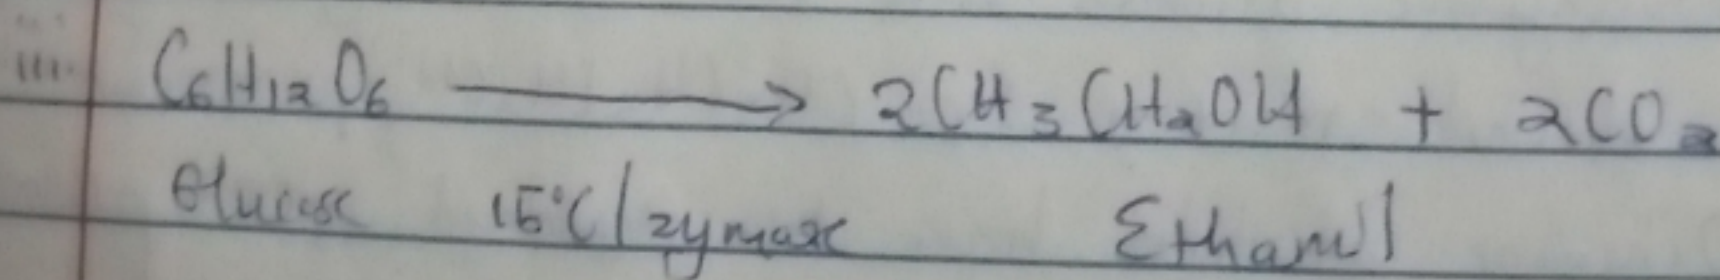 iii. C₆H₁₂O₆ ⟶ 2CH₃CH₂OH + 2CO₂
Glucose 15°C/zymase Ethanol